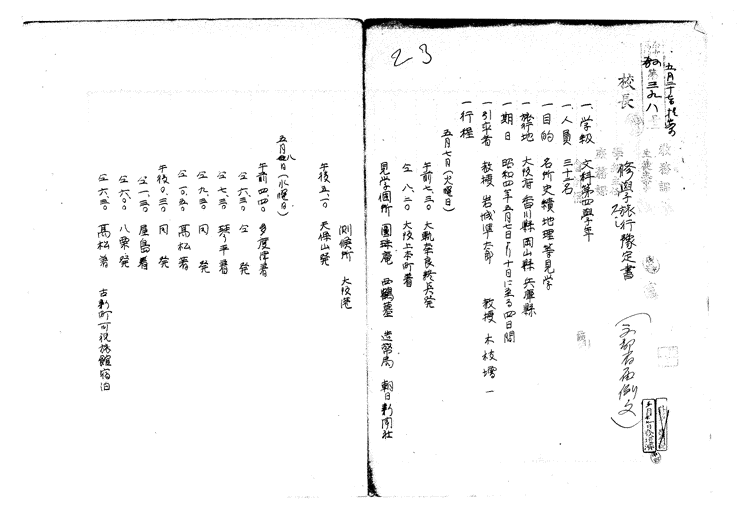 23
校長
修學旅行豫定書
一、學級 文科第四學年
一、人員 三十一名
一目的 名所史蹟地理等見学
一旅行地 大阪府 香川縣 岡山縣 兵庫縣
一期日 昭和四年五月七日ヨリ十日に至る四日間
一引率者 教授 岩城準太郎 教授 木枝増一
一行程
五月七日(火曜日)
午前七、三〇 大軌奈良終点発
仝 八、二〇 大阪上本町着
見学個所 圓珠庵 西鶴墓 造幣局 朝日新聞社
測候所 大阪港
午後五、一〇 天保山発
五月八日(水曜日)
午前四、四〇 多度津着
仝 六、三〇 仝 発
仝 七、三〇 琴平着
仝 九、三〇 同 発
仝 一〇、五〇 高松着
午後〇、三〇 同 発
仝 一、三〇 屋島着
仝 六、〇〇 八栗発
仝 六、三〇 高松着 古新町可祝旅館宿泊